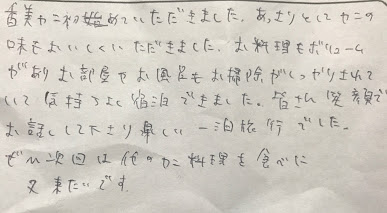 香美カニ初始めていただきました。あっさりとしてカニの
味をおいしくいただきました。お料理もボリューム
がありお部屋やお風呂もお掃除がしっかりされ
ていて気持ちよく宿泊できました。皆さん笑顔で
お話して下さり楽しい一泊旅行でした。
ぜひ次回は他のカニ料理を食べに
又来たいです。